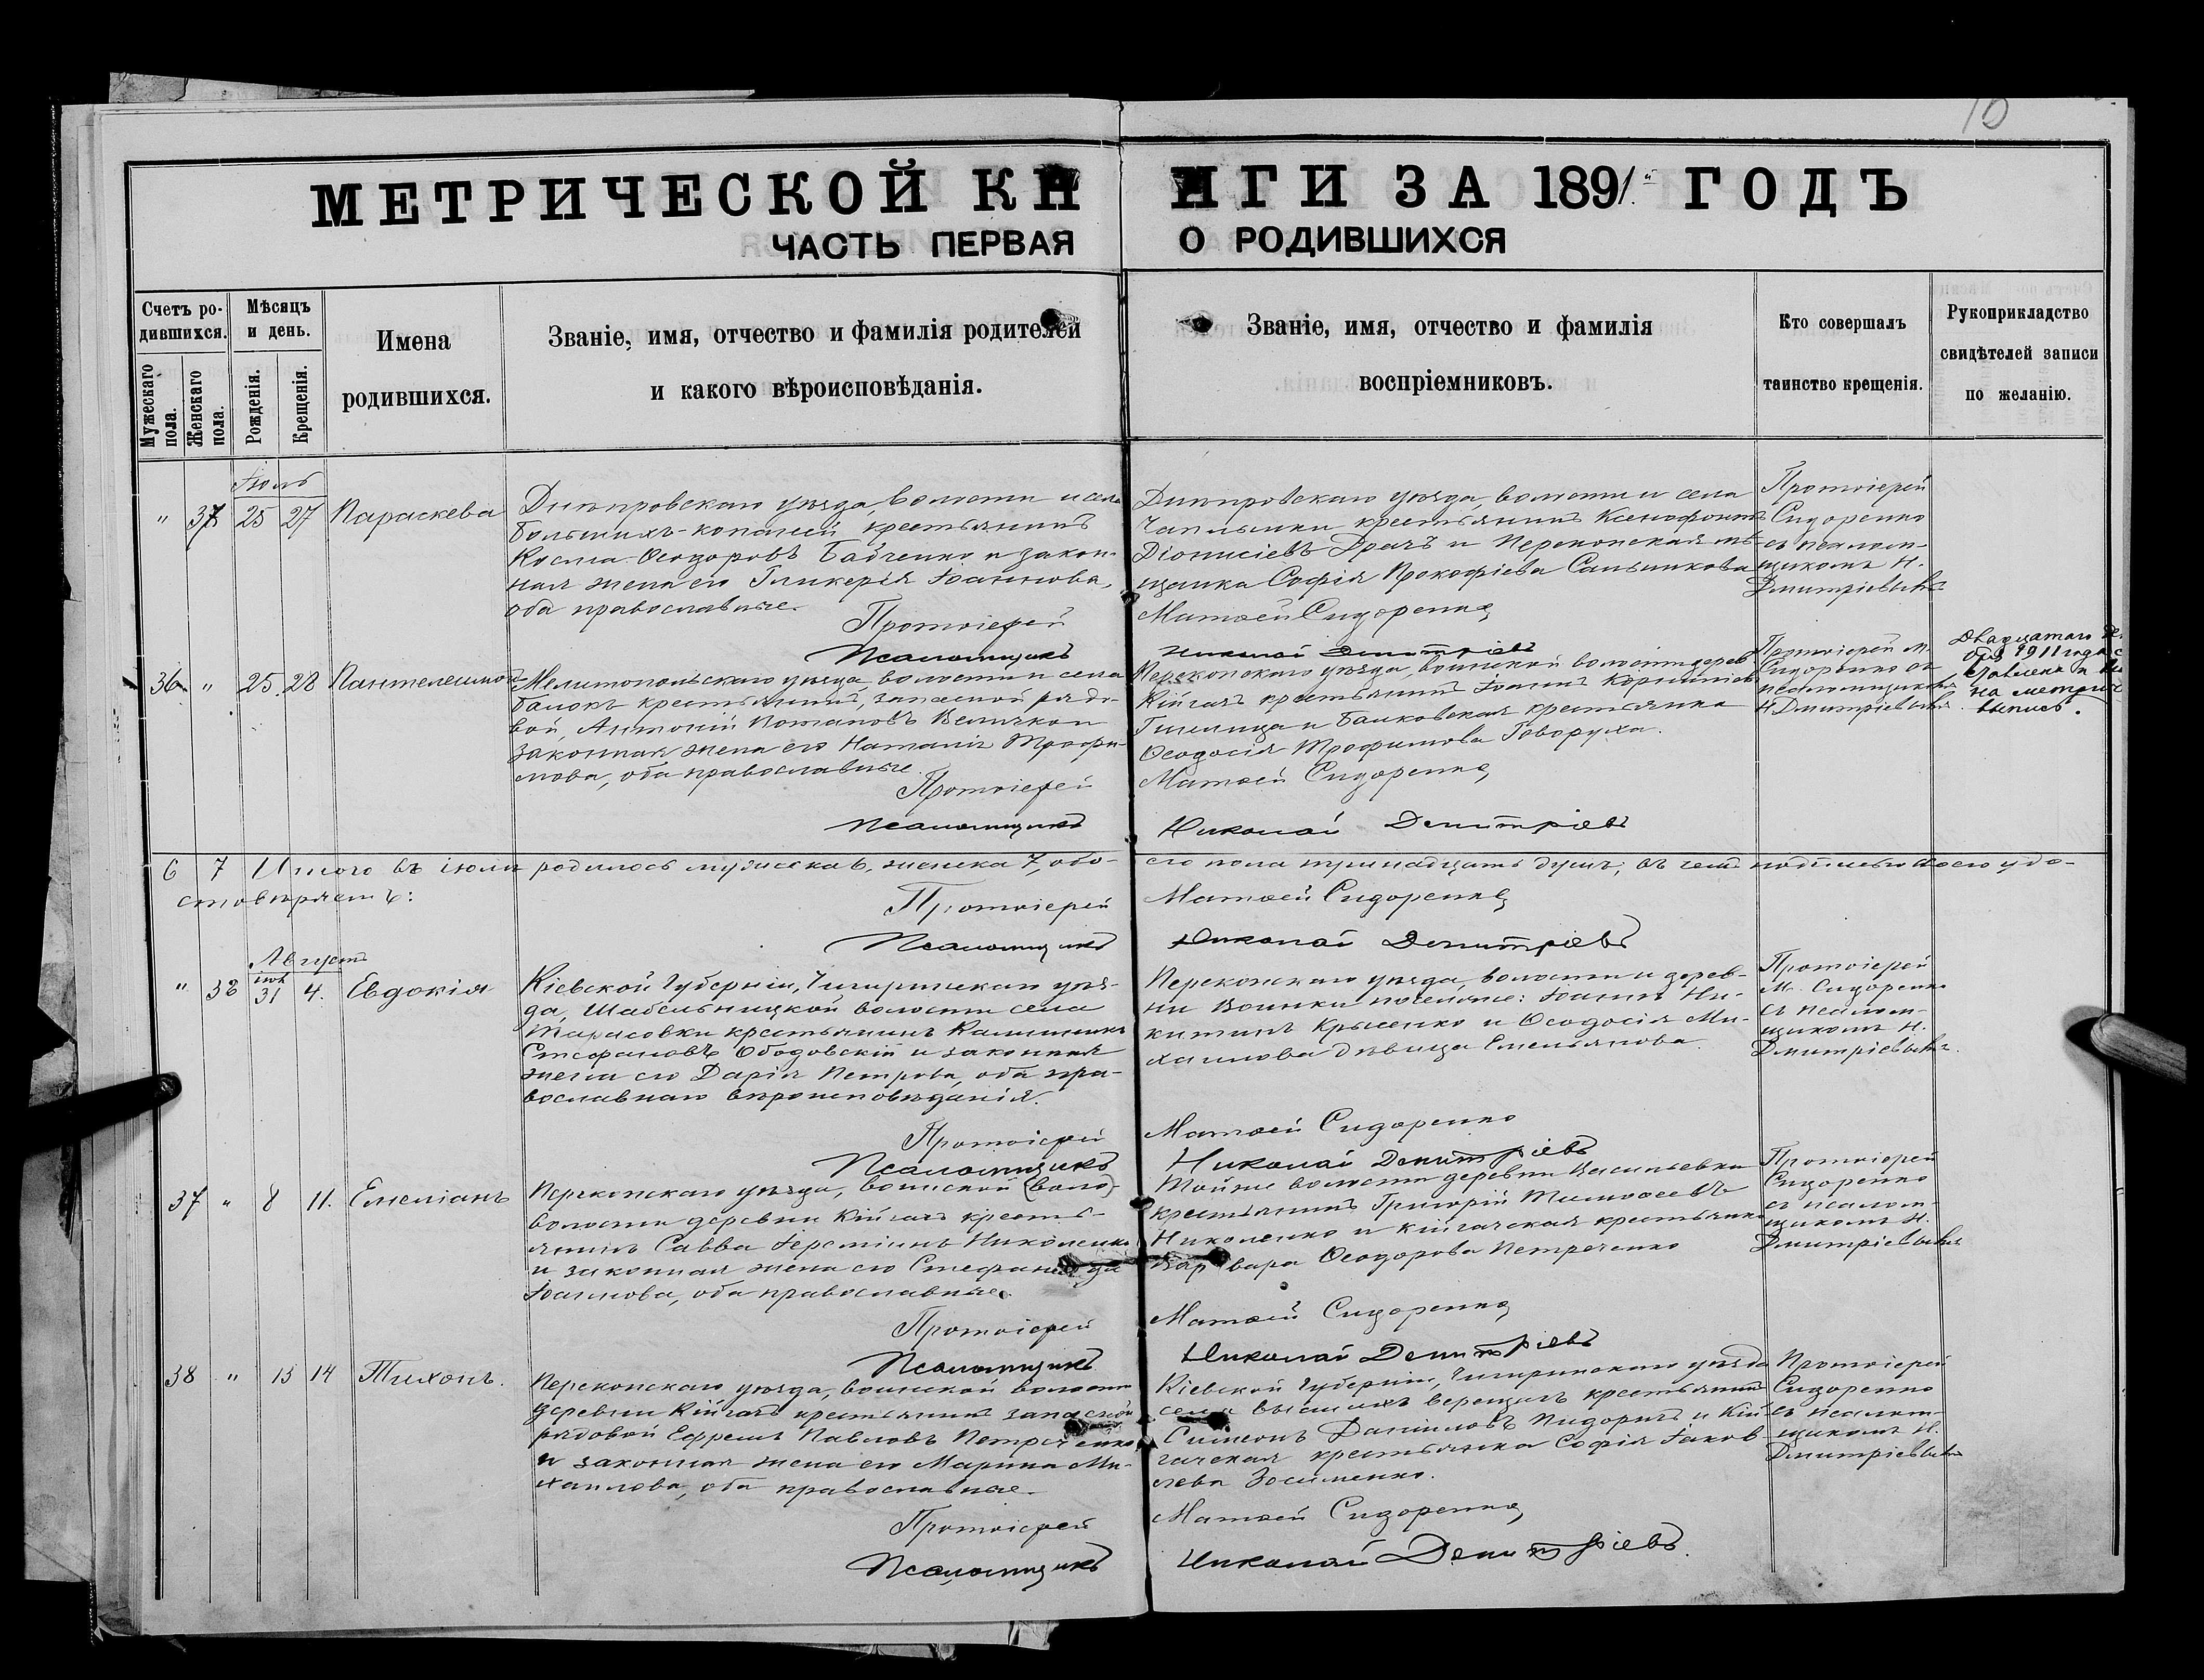 10
МЕТРИЧЕСКОЙ КНИГИ ЗА 1891й ГОДЪ
ЧАСТЬ ПЕРВАЯ О РОДИВШИХСЯ
Счетъ родившихся.
Мужескаго пола.
Женскаго пола.
Мѣсяцъ и день.
Рожденія.
Крещенія.
Имена родившихся.
Званіе, имя, отчество и фамилія родителей
и какого вѣроисповѣданія.
Званіе, имя, отчество и фамилія
воспріемниковъ.
Кто совершалъ
таинство крещенія.
Рукоприкладство
свидѣтелей записи
по желанію.
Іюль
" 37 25 27 Параскева
Днѣпровскаго уѣзда, волости и села
Большихъ-Копаней крестьянинъ
Косма Ѳеодоровъ Бабченко и закон-
ная жена его Гликерія Іоаннова,
оба православные.
Днѣпровскаго уѣзда, волости и села
Чаплынки крестьянинъ Ксенофонтъ
Діонисіевъ Драчъ и Перекопская мѣ-
щанка Софія Прокофіева Сальникова
Протоіерей
Сидоренко
съ псалом-
щикомъ Н.
Дмитріевымъ
Протоіерей Матѳей Сидоренко
Псаломщикъ Николай Димитріевъ
36 " 25 28 Пантелеимонъ
Мелитопольскаго уѣзда волости и села
Балокъ крестьянинъ, запасной рядо-
вой, Антоній Потаповъ Величко и
законная жена его Наталія Трофи-
мова, оба православные.
Перекопскаго уѣзда, воинской волости дерев
Кійгачъ крестьянинъ Іоаннъ Корниліевъ
и Балковская крестьянка
Ѳеодосія Трофимова Говоруха.
Протоіерей М.
Сидоренко съ
псаломщикомъ
Н. Дмитріевымъ.
Двадцатаго
1911 года
на метрич
выпись.
Протоіерей Матѳей Сидоренко
Псаломщикъ Николай Димитріевъ
6 7 Итого въ іюлѣ родилось мужеска 6, женска 7, обо-
его пола тринадцать душъ; въ чемъ подписью своею удо-
стовѣряемъ:
Протоіерей Матѳей Сидоренко
Псаломщикъ Николай Димитріевъ
Августъ
" 38 іюл 31 4. Евдокія
Кіевской Губерніи, Чигиринскаго уѣз-
да, Шабельницкой волости села
Тарасовки крестьянинъ Каллиникъ
Стефановъ Ободовскій и законная
жена его Дарія Петрова, оба пра-
вославнаго вѣроисповѣданія.
Перекопскаго уѣзда, волости и дерев-
ни Воинки поселяне: Іоаннъ Ни-
китинъ Крысенко и Ѳеодосія Ми-
хаилова дѣвица Емельянова.
Протоіерей
М. Сидоренко
съ псалом-
щикомъ Н.
Дмитріевымъ.
Протоіерей Матѳей Сидоренко
Псаломщикъ Николай Димитріевъ
37 " 8 11. Емеліанъ
Перекопскаго уѣзда, воинской (воло)-
волости деревни Кійгачъ кресть-
янинъ Савва Іереміинъ Николенко
и законная жена его Стефанида
Іоаннова, оба православные.
Тойже волости деревни Васильевки
крестьянинъ Григорій Тимоѳеевъ
Николенко и кійгачская крестьянка
Варвара Ѳеодорова Петреченко
Протоіерей
Сидоренко
съ псалом-
щикомъ Н.
Дмитріевымъ
Протоіерей Матѳей Сидоренко
Псаломщикъ Николай Димитріевъ
38 " 13 14 Тихонъ.
Перекопскаго уѣзда, воинской волости
деревни Кійгачъ крестьянинъ запасной
рядовой Ефремъ Павловъ Петреченко
и законная жена его Марина Ми-
хаилова, оба православные.
Кіевской Губерніи, Чигиринскаго уѣзда
села верещакъ крестьянинъ
Симеонъ Даніиловъ Пидоричъ и Кій-
гачская крестьянка Софія Іаков-
лева Зосименко.
Протоіерей
Сидоренко
съ псалом-
щикомъ Н.
Дмитріевымъ
Протоіерей Матѳей Сидоренко
Псаломщикъ Николай Димитріевъ.